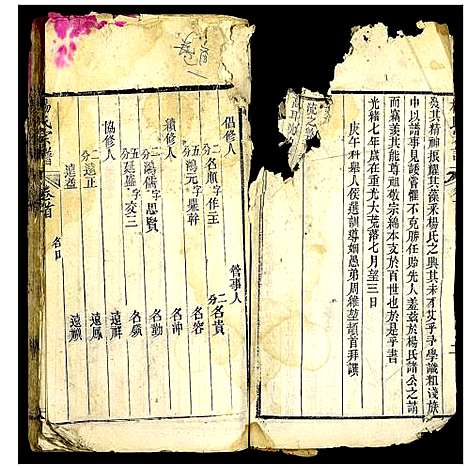 奚其精神振耀其藻采楊氏之興其未艾乎予學識粗淺族
中以譜事見囑嘗懼不克勝任貽先人羞茲於楊氏諸公之請
而竊羡其能尊祖敬宗綿本支於百世也於是乎書
光緒七年歲在重光大荒落七月望三日
庚午科舉人候選訓導姻愚弟周維堃頓首拜譔
楊氏宗譜
卷首
名目
倡修人
二分名順字作王
五分鴻元字肇幹
續修人
二分鴻儒字思賢
五分廷盛字交三
協修人
二分遠正
遠燕
管事人
二分名貴
名容
名沖
名勤
名顯
遠祥
遠鳳
遠颺